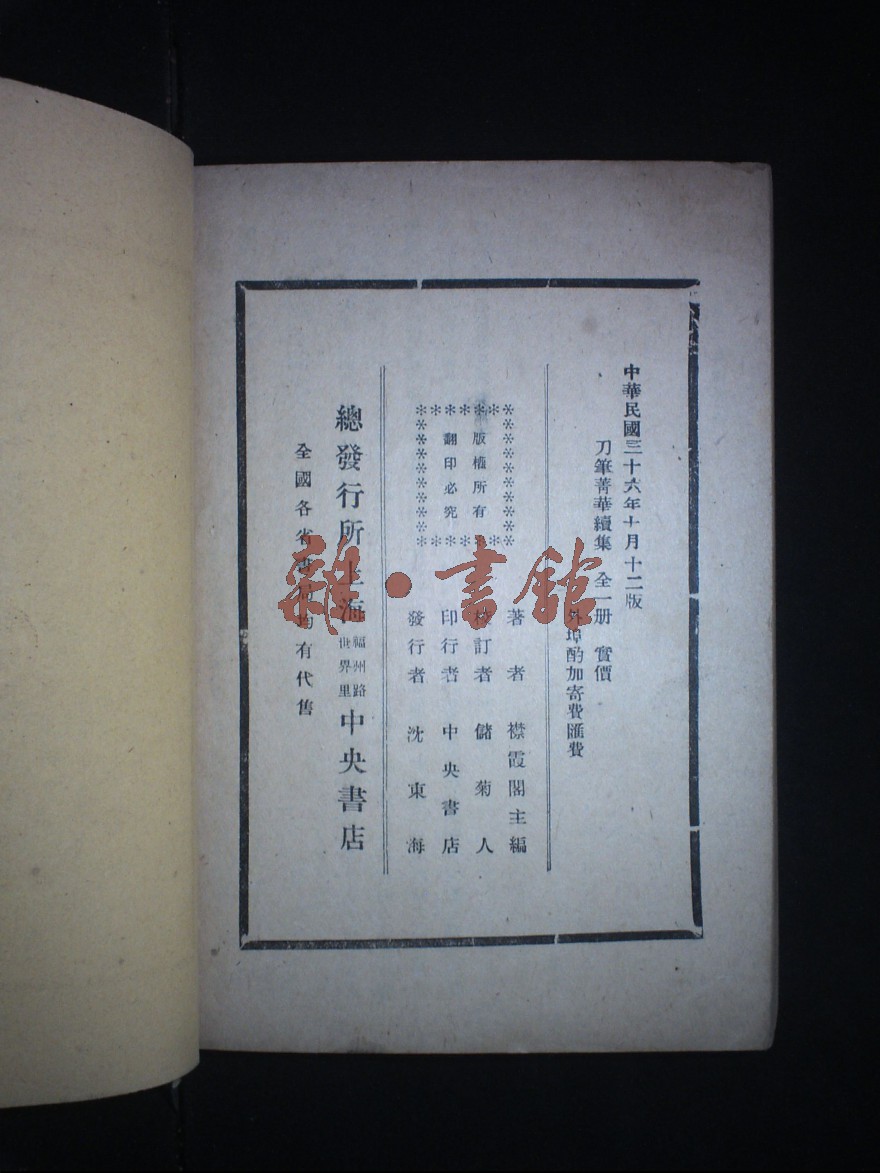 中華民國三十六年十月十二版
刀筆菁華續集 全一册 實價
外埠酌加寄費匯費
版權所有
翻印必究
著者 襟霞閣主編
校訂者 儲菊人
印行者 中央書店
發行者 沈東海
總發行所上海福州路世界里中央書店
全國各省書局均有代售
雜·書館